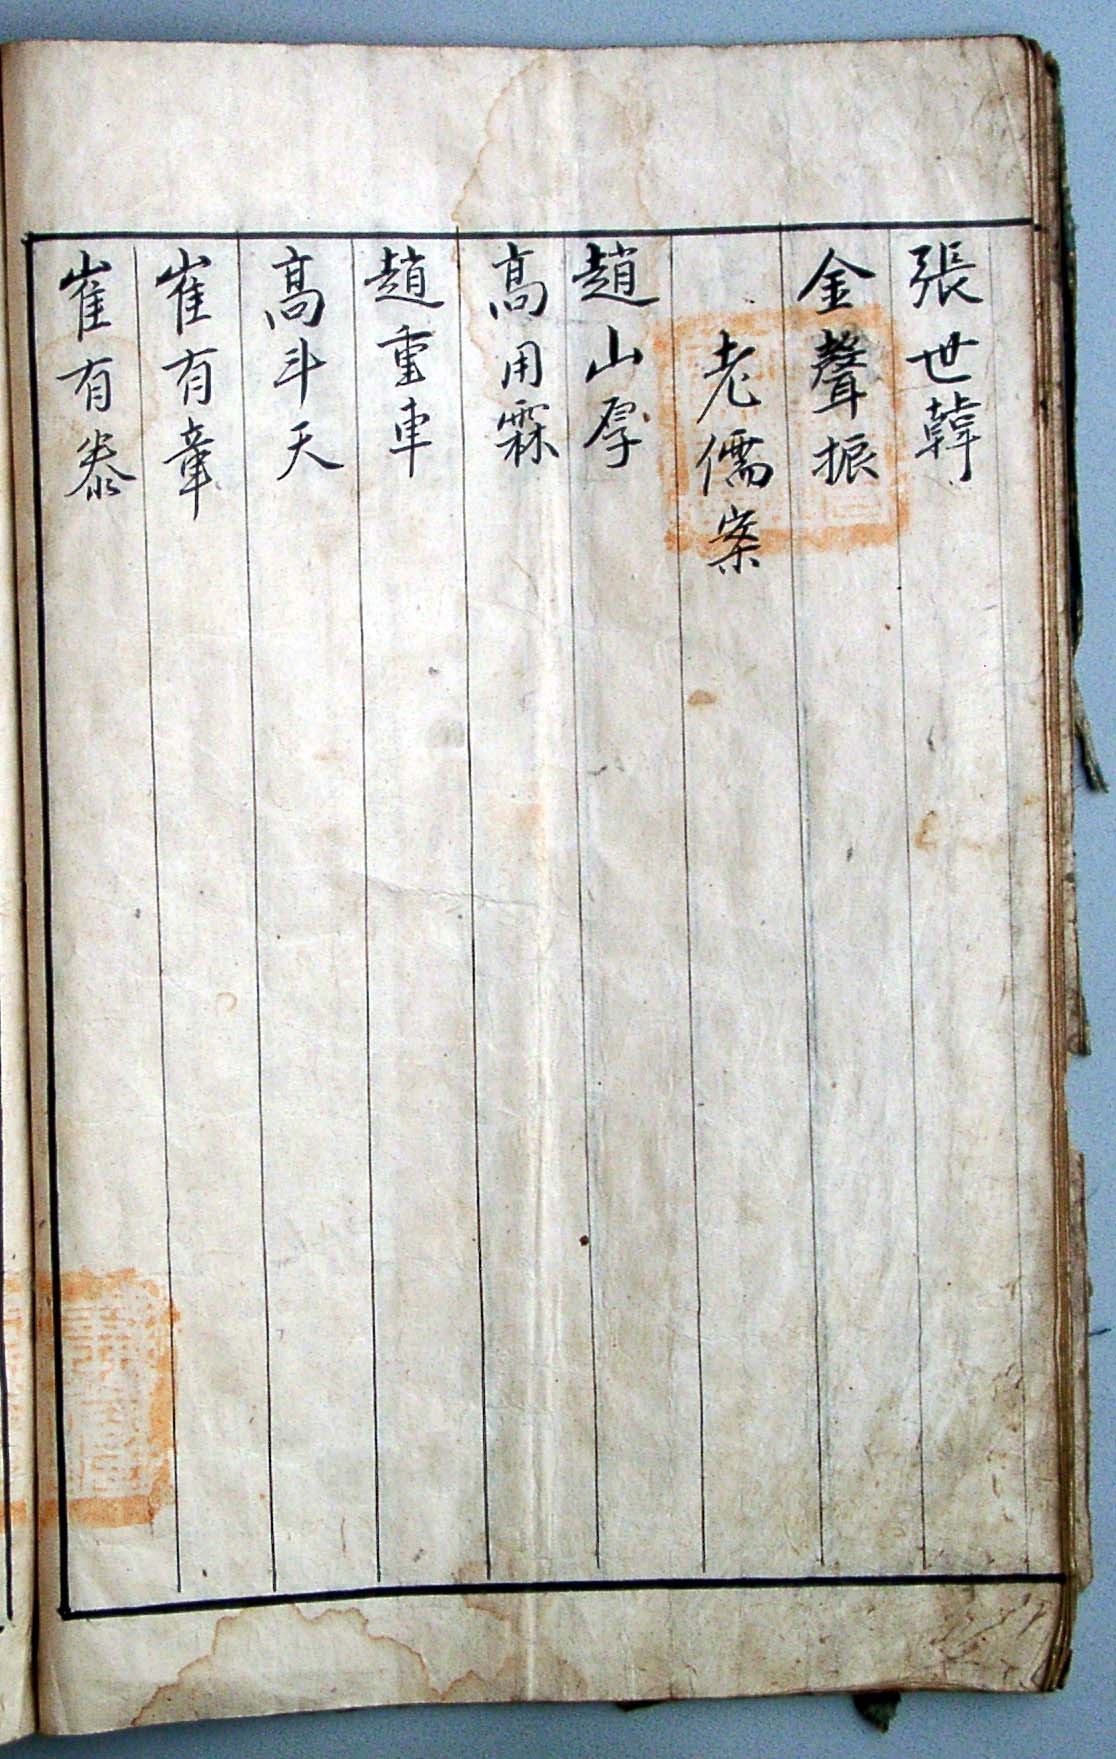 張世韓
金聲振
老儒案
趙山厚
高用霖
趙重車
高斗天
崔有章
崔有泰